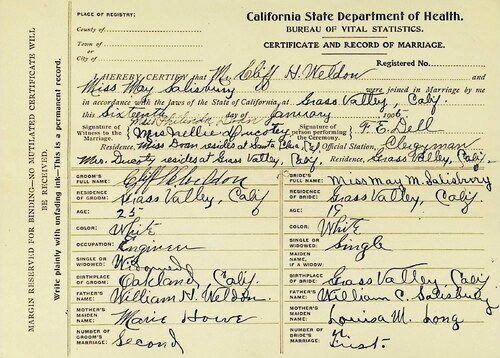 PLACE OF REGISTRY:
County of
Town of
or
City of
California State Department of Health.
BUREAU OF VITAL STATISTICS.
CERTIFICATE AND RECORD OF MARRIAGE.
Registered No.
I HEREBY CERTIFY that Mr Cliff H. Weldon and
Miss May Salisbury were joined in Marriage by me
in accordance with the laws of the State of California, at Grass Valley, Calif.
this Sixteenth day of January 1906
Signature of Witness to the Marriage Miss Doran
Mrs Nellie Ducoty
Signature of person performing the Ceremony. F. E. Dell
Residence, Miss Doran resides at Santa Official Station, Clergyman
Mrs. Ducoty resides at Grass Valley, Calif. Residence, Grass Valley, Calif.
MARGIN RESERVED FOR BINDING—NO MUTILATED CERTIFICATE WILL BE RECEIVED.
Write plainly with unfading ink—This is a permanent record.
GROOM'S FULL NAME: Cliff H Weldon
RESIDENCE OF GROOM: Grass Valley, Calif
AGE: 25
COLOR: White
OCCUPATION: Engineer
SINGLE OR WIDOWED: Widowed
BIRTHPLACE OF GROOM: Oakland, Calif.
FATHER'S NAME: William H. Weldon.
MOTHER'S MAIDEN NAME: Marie Howe
NUMBER OF GROOM'S MARRIAGE: Second
BRIDE'S FULL NAME: Miss May M. Salisbury
RESIDENCE OF BRIDE: Grass Valley, Calif
AGE:
COLOR: White
SINGLE OR WIDOWED: Single
MAIDEN NAME, IF A WIDOW:
BIRTHPLACE OF BRIDE: Grass Valley Calif
FATHER'S NAME: William C. Salisbury
MOTHER'S MAIDEN NAME: Louisa M. Long
NUMBER OF BRIDE'S MARRIAGE: First.